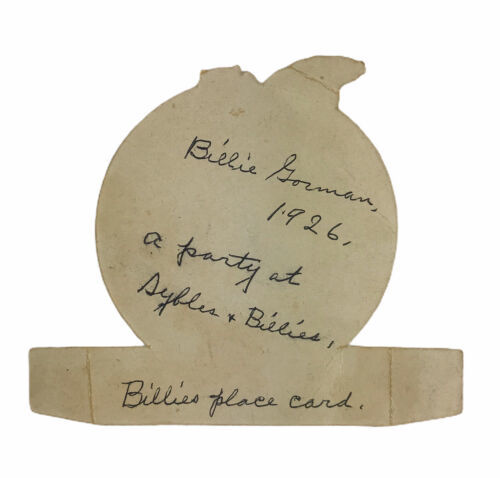 Billie Gorman,
1926.
a party at
Sybles + Billies,
Billies place card.